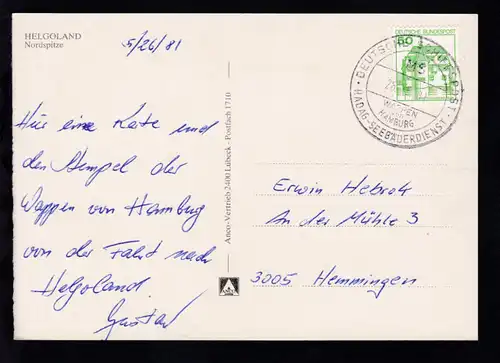 HELGOLAND
Nordspitze
5/26/81
Hier eine Karte und
den Stempel der
Wappen von Hamburg
von der Fahrt nach
Helgoland.
Gustav
Anco-Vertrieb 2400 Lübeck - Postfach 1710
DEUTSCHE BUNDESPOST
50
DEUTSCHE SCHIFFSPOST
MS
WAPPEN
VON
HAMBURG
HADAG-SEEBÄDERDIENST
Erwin Hebrok
An der Mühle 3
3005 Hemmingen